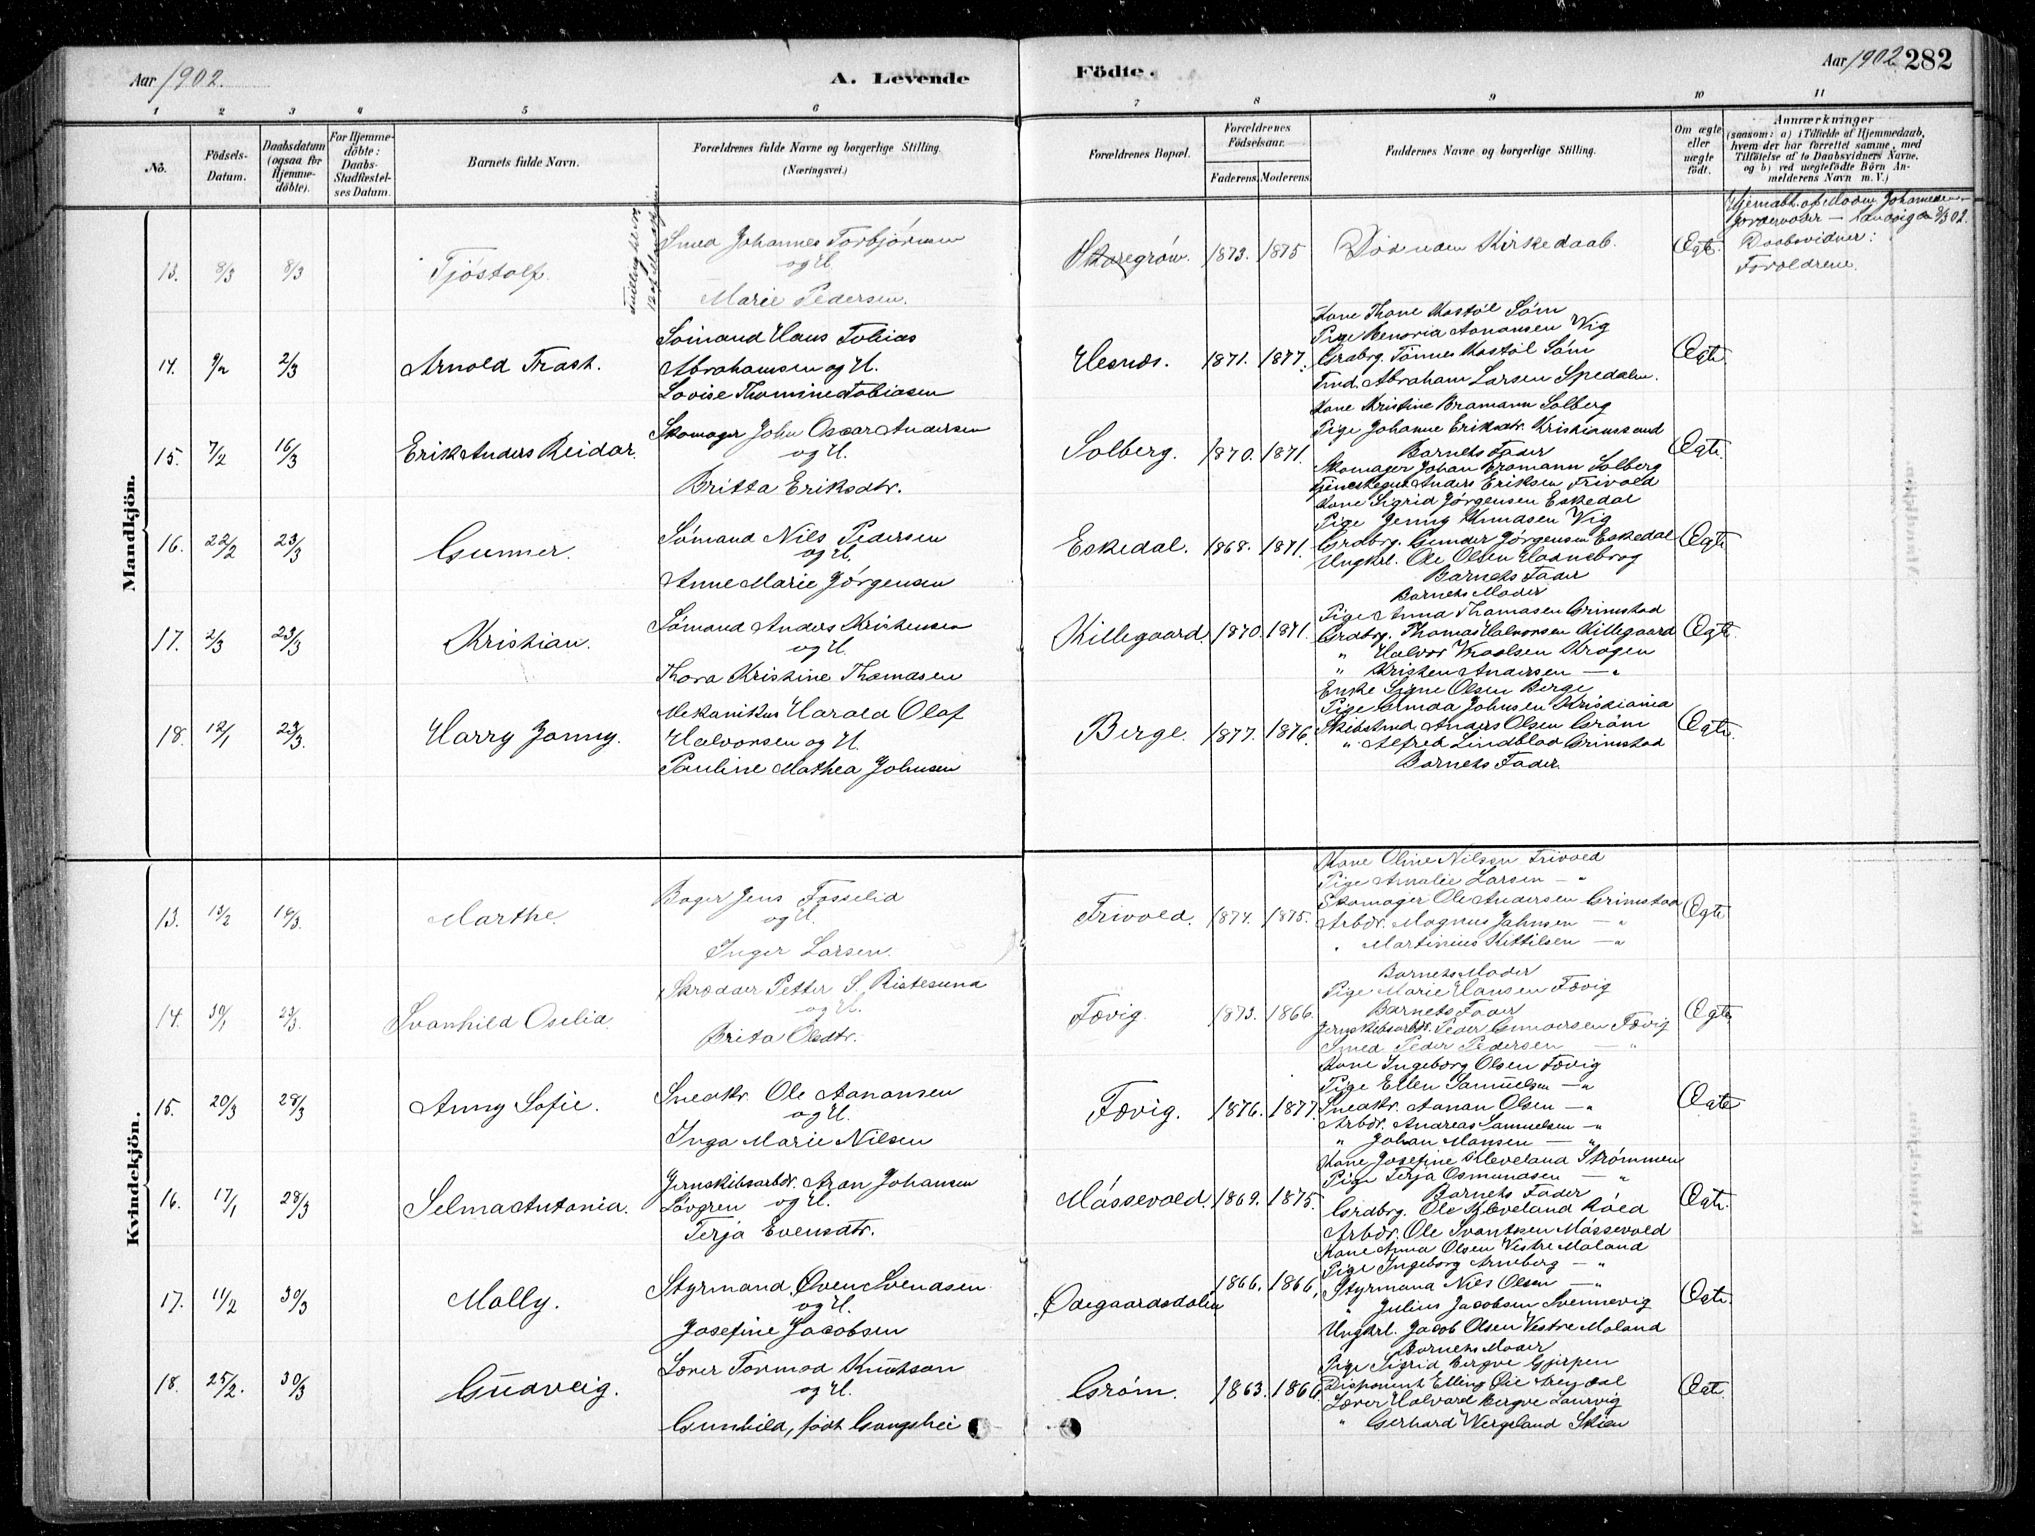 Aar 1902.
A. Levende
Födte.
Aar 1902
282
1 2 3 4 5 6 7 8 9 10 11
No.
Födsels-Datum.
Daabsdatum (ogsaa for Hjemme-döbte).
For Hjemme-döbte: Daabs-Stadfæstel-ses Datum.
Barnets fulde Navn.
Forældrenes fulde Navne og borgerlige Stilling.
(Næringsvei.)
Forældrenes Bopæl.
Forældrenes Födselsaar.
Faderens. Moderens.
Faddernes Navne og borgerlige Stilling.
Om ægte eller uægte födt.
Anmærkninger
(saasom: a) i Tilfælde af Hjemmedaab, hvem der har forrettet samme, med Tilföielse af to Daabsvidners Navne, og b) ved uægtefödte Börn An-melderens Navn m. V.)
Mandkjön.
13. 8/3 8/3 Tjöstolf.
Smed Johannes Torbjörnsen
og H.
Marie Pedersen.
Skaregrøn. 1873. 1875
Död uden Kirkedaab.
Egte.
Daabsvidner:
Forældrene.
14. 9/2 2/3 Arnold Trast.
Sömand Hans Tobias
Abrahamsen og H.
Lovise Thomine Tobiasen
Hesnæs. 1871. 1877.
Kone Thone Kastöl Söm
Pige Benoria Aanonsen Vig
Grdbrg. Tönnes Kastöl Söm
Tmd. Abraham Larsen Spedalen.
Egte.
15. 7/2 16/3 Erik Anders Reidar.
Skomager John Oscar Andersen
og H.
Britta Eriksdtr.
Solberg. 1870. 1871.
Kone Kristine Bromann Solberg
Pige Johanne Eriksdtr. Kristianssand
Barnets Fader
Skomager Johan Bromann Solberg
Anders Eriksen Frivold
Egte.
16. 22/2 23/3 Gunner.
Sömand Nils Pedersen
og H.
Anne Marie Jörgensen
Eskedal. 1868. 1871.
Kone Sigrid Jörgensen Eskedal
Pige Jenny Knudsen Vig
Grdbrg. Gunder Jörgensen Eskedal
Ungkrl. Ole Olsen Haaneborg
Barnets Fader
Egte
17. 2/3 23/3 Kristian.
Sömand Anders Kristensen
og H.
Thora Kristine Thomasen
Killegaard 1870. 1871.
Barnets Moder
Pige Anna Thomasen Grimstad
Grdbrg. Thomas Halvorsen Killegaard
" Halvor Knudsen Krogen
" Kristen Andersen — "
Egte.
18. 12/1 23/3. Harry Jonny.
Mekanikus Harald Olaf
Halvorsen og H.
Pauline Mathea Johnsen
Berge. 1877. 1876.
Enke Signe Olsen Berge
Pige Amda Johnsen Kristiania
Skibstmd Anders Olsen Gröm
" Alfred Lindblad Grimstad
Barnets Fader.
Egte.
Kvindekjön.
13. 13/2 16/3. Marthe.
Bager Jens Fosselid
og H.
Inger Larsen.
Frivold. 1874. 1875.
Kone Oline Nilsen Frivold
Pige Amalie Larsen — "
Skomager Ole Andersen Grimstad
Arbdr. Magnus Jahnsen — "
" Martinius Kittilsen — "
Egte
14. 30/1 23/3. Svanhild Oselia.
Skrædder Petter S. Ristesund
og H.
Brita Olsdtr.
Fævig. 1873. 1866.
Barnets Moder
Pige Marie Hansen Fævig
Barnets Fader
Jernskibsarbdr. Peder Gundersen Fævig
Smed Peder Pedersen — "
Egte
15. 20/3 28/3 Anny Sofie.
Snedkr. Ole Aanonsen
og H.
Inga Marie Nilsen
Fævig. 1876. 1877.
Kone Ingeborg Olsen Fævig
Pige Ellen Samuelsen — "
Snedkr. Aanon Olsen — "
Arbdr. Andreas Samuelsen — "
" Johan Monsen — "
Egte
16. 17/1 28/3 Selma Antonia.
Jernskibsarbdr. Aron Johansen
Lövgren og H.
Terja Evensdtr.
Mässevold. 1869. 1875.
Kone Josefine Kleveland Strömmen
Pige Terja Osmundsen — "
Barnets Fader
Grdbrg. Ole Kleveland Röed
Arbdr. Ole Svendsen Mässevold
Egte.
17. 11/2 30/3 Molly.
Styrmand Oven Svendsen
og H.
Josefine Jacobsen
Ödegaardsdalen 1866. 1866.
Kone Anna Olsen Vestre Moland
Pige Ingeborg Arneberg — "
Styrmand Nils Olsen — "
" Julius Jacobsen Svennevig
Ungkrl. Jacob Olsen Vestre Moland
Egte.
18. 25/2. 30/3 Gudveig.
Lærer Tormod Knutson
og H.
Gunhild, födt Gangshei
Gröm. 1863. 1866
Barnets Moder
Pige Sigrid Bergve Gjerpen
Disponent Elling Lie Arendal
Lærer Halvard Bergve Laurvig
" Gerhard Wergeland Skien
Egte.